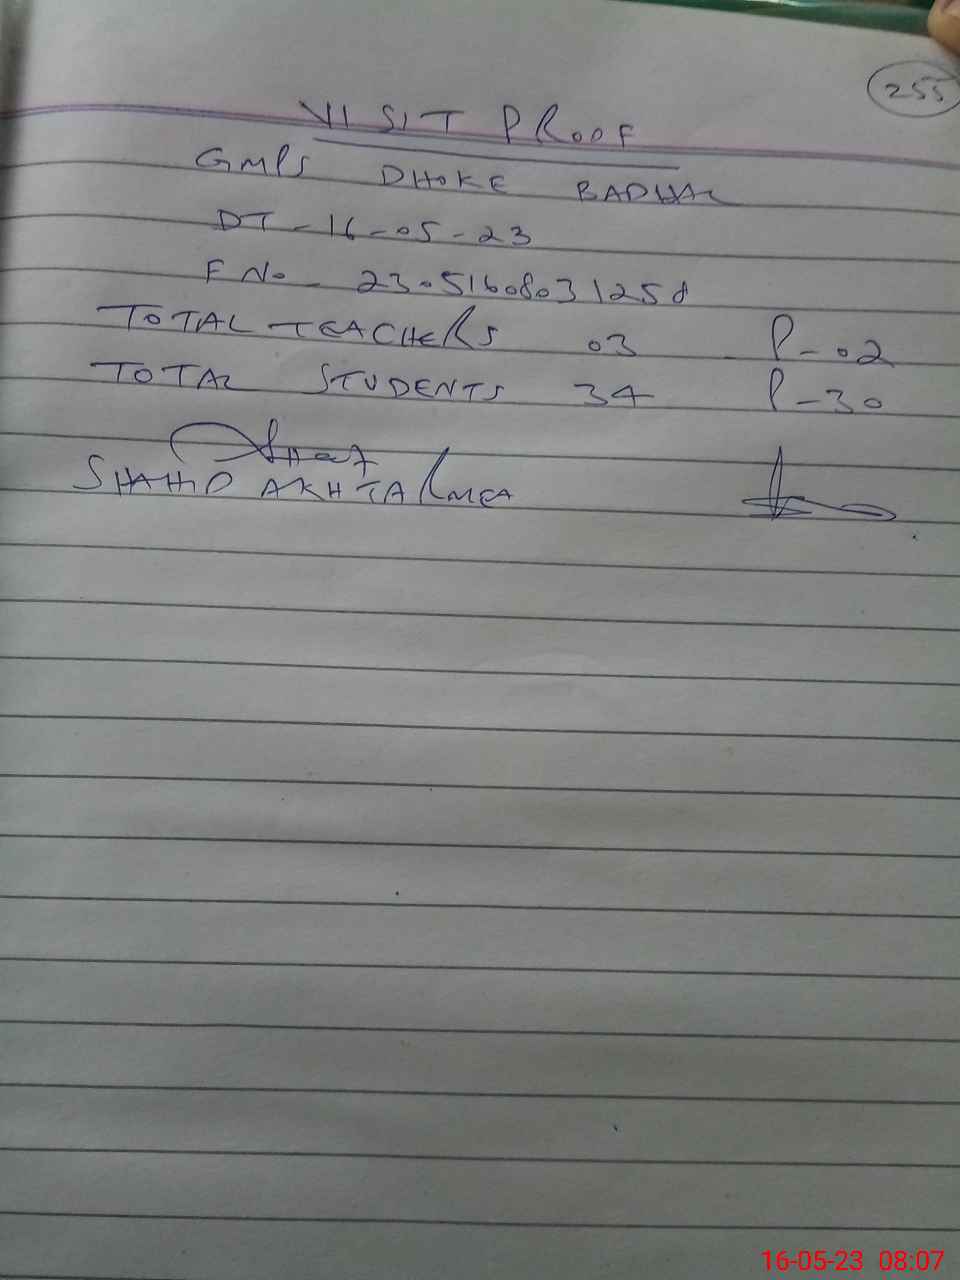 255
VISIT PROOF
GMPS DHOKE BADHAL
DT - 16-05-23
F No - 23051608031258
TOTAL TEACHERS 03 P-02
TOTAL STUDENTS 34 P-30
SHAHID AKHTAR MEA
16-05-23 08:07